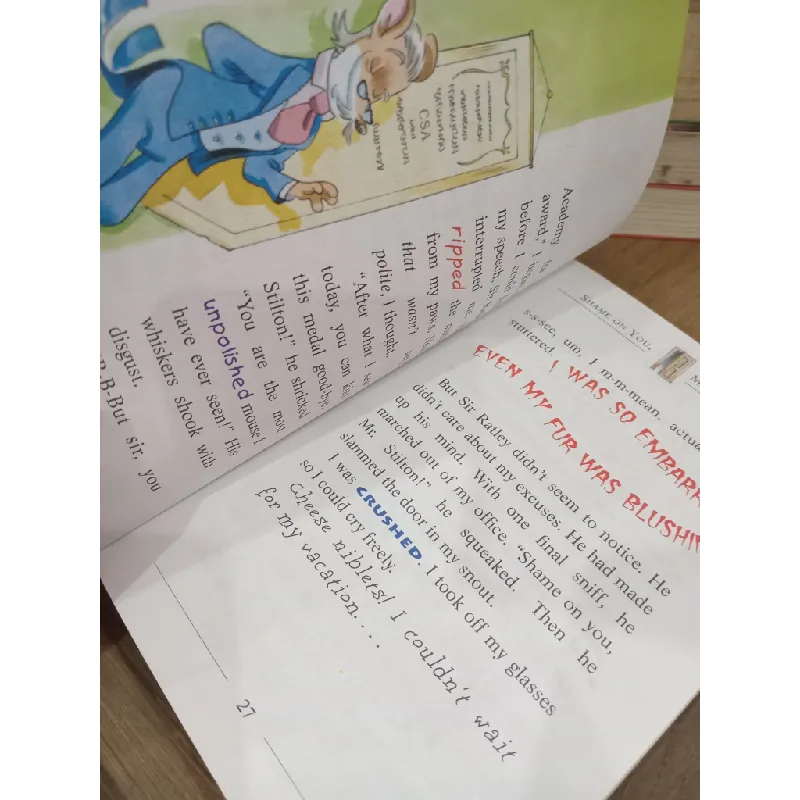 CSA
Academy for
award," I
before I could
my speech, Sir
interrupted me.
ripped the
from my paws.
that wasn't
polite, I thought.
"After what I
today, you can kiss
this medal good-bye,
Stilton!" he shrieked.
"You are the most
unpolished mouse I
have ever seen!" His
whiskers shook with
disgust.
B-B-But sir, you
SHAME ON YOU,
s-s-see, um, I m-m-mean, actua
stuttered. I WAS SO EMBARR
EVEN MY FUR WAS BLUSHIN
But Sir Ratley didn't seem to notice. He
didn't care about my excuses. He had made
up his mind. With one final sniff, he
marched out of my office. "Shame on you,
Mr. Stilton!" he squeaked. Then he
slammed the door in my snout.
I was CRUSHED. I took off my glasses
so I could cry freely.
Cheese niblets! I couldn't wait
for my vacation....
27